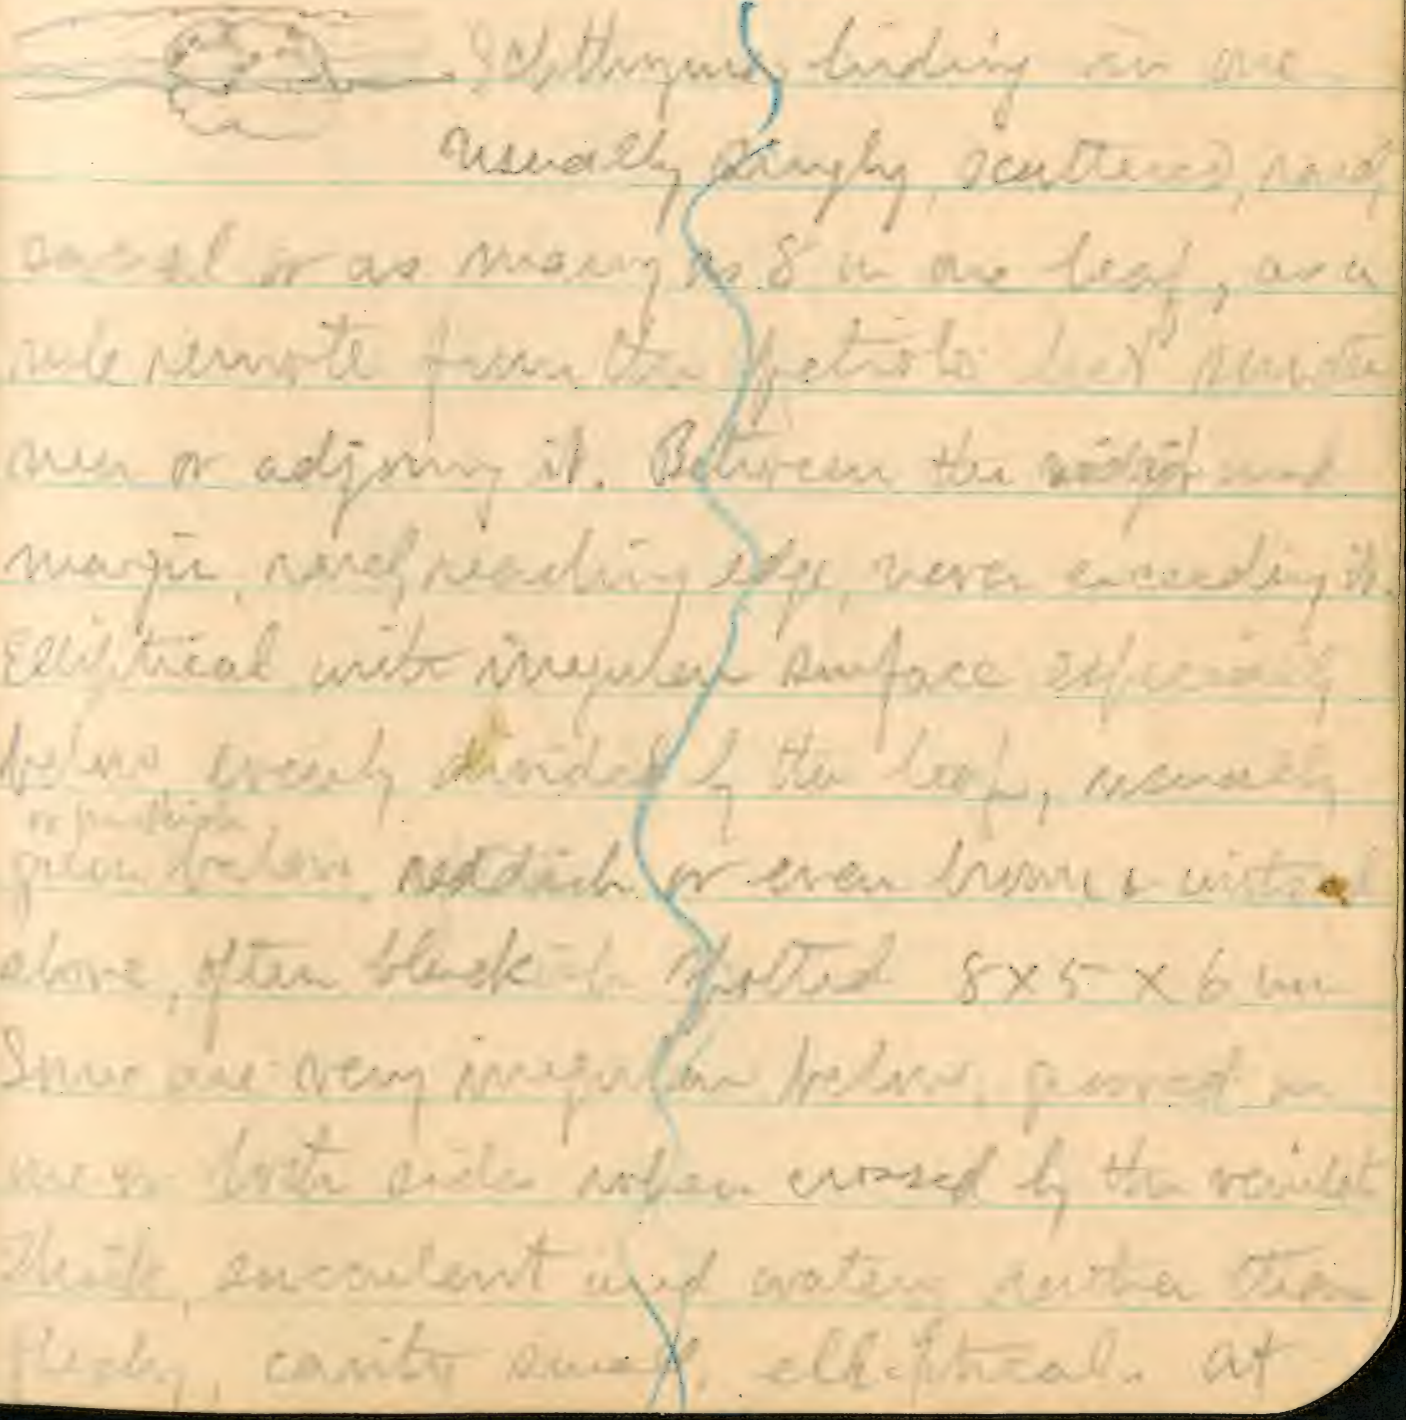 hiding in one
Usually singly, scattered, rarely
several or as many as 8 in one leaf, as a
rule remote from the petiole but sometimes
near or adjoing it. Between the midrib and
margin, rarely reaching edge, never exceeding it.
Elliptical with irregular surface especially
below, evenly divided by the leaf, usually
or pinkish
green below reddish or even brown
above, often blackish spotted 8 x 5 x 6 mm
Some are very irregular below,
one or both sides when crossed by the veinlet
Thick, succulent and watery rather than
fleshy, cavity small, elliptical. At